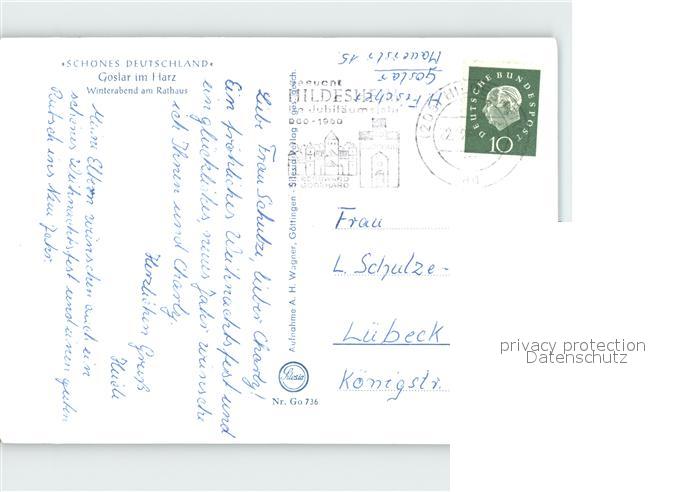 „SCHÖNES DEUTSCHLAND“
Goslar im Harz
Winterabend am Rathaus
Liebe Frau Schulze, lieber Charly!
Ein fröhliches Weihnachtsfest und
ein glückliches, neues Jahr wünsche
ich Ihnen und Charly.
Herzlichen Gruß
Heidi
Meine Eltern wünschen auch ein
schönes Weihnachtsfest und einen guten
Rutsch ins Neue Jahr.
Aufnahme A. H. Wagner, Göttingen Silesia Verlag
Silesia
Nr. Go 736
H. Fischer
Goslar
Mauerstr. 15.
HILDESHEIM
Jubiläumsjahr
-1960
BERNWARD
GODEHARD
DEUTSCHE BUNDESPOST
10
Frau
L. Schulze-
Lübeck
Königstr.
privacy protection
Datenschutz